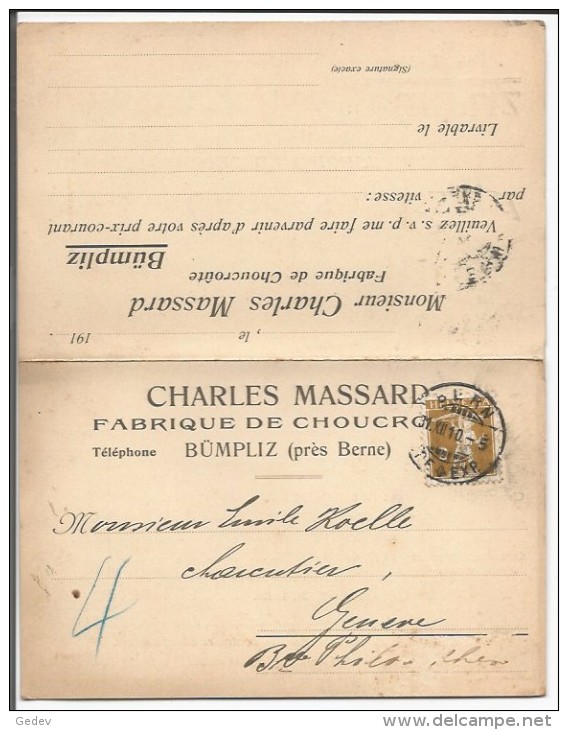 (Signature exacte)
Livrable le
par vitesse:
Veuillez s. v. p. me faire parvenir d'après votre prix-courant
Bümpliz
Fabrique de Choucroûte
Monsieur Charles Massard
, le 191
CHARLES MASSARD
FABRIQUE DE CHOUCRO
Téléphone BÜMPLIZ (près Berne)
BERN
31.XII.10.-5
EXP.
Monsieur Emile Koelle
charcutier,
Geneve
4
Gedev
http://www.delcampe.net